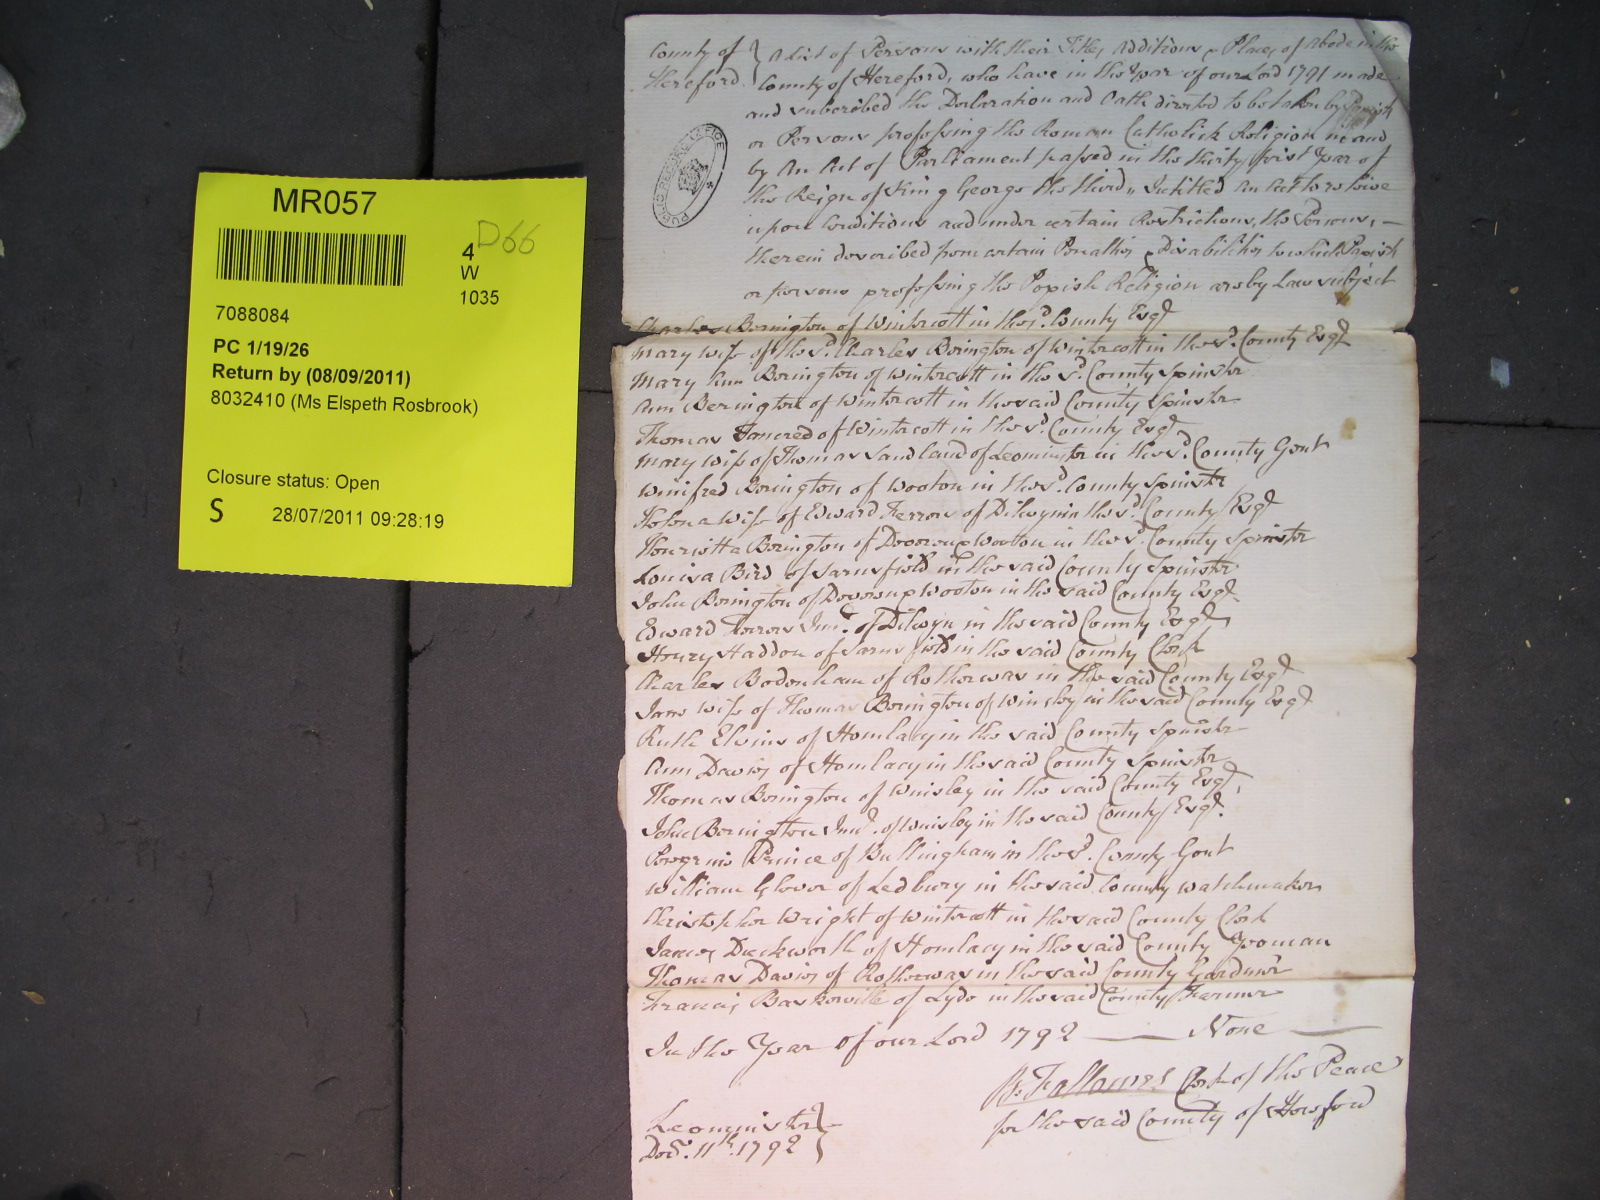 MR057
D66
4
W
1035
7088084
PC 1/19/26
Return by (08/09/2011)
8032410 (Ms Elspeth Rosbrook)
Closure status: Open
S 28/07/2011 09:28:19
PUBLIC RECORD OFFICE
County of } A List of Persons with their Titles Additions & Places of Abode in the
Hereford. County of Hereford, who have in the Year of our Lord 1791 made
and subscribed the Declaration and Oath directed to be taken by Papists
or Persons professing the Roman Catholick Religion in and
by An Act of Parliament passed in the thirty first Year of
the Reign of King George the third, Intitled An Act to relieve
upon Conditions and under certain Restrictions, the Persons, —
therein described from certain Penalties & Disabilities to which Papists
or persons professing the Popish Religion are by Law subject
Charles Berington of Wintercott in the sd. County Esqr.
Mary wife of the sd. Charles Berington of Wintercott in the sd. County Esqr.
Mary Ann Berington of Wintercott in the sd. County Spinster
Ann Berington of Wintercott in the said County Spinster
Thomas Tancred of Wintercott in the sd. County Esqr.
Mary wife of Thomas Sandland of Leominster in the sd. County Gent
Winifred Berington of Wooton in the sd. County Spinster
Helena Wife of Edward Ferrers of Dilwyn in the sd. County Esqr.
Henrietta Berington of Devereux Wooton in the sd. County Spinster
Louisa Bird of Sarnsfield in the said County Spinster
John Berington of Devereux Wooton in the said County Esqr.
Edward Ferrers Junr. of Dilwyn in the said County Esqr.
Henry Haddon of Sarnsfield in the said County Clerk
Charles Bodenham of Rotherwas in the said County Esqr.
Jane wife of Thomas Berington of Winsley in the said County Esqr.
Ruth Elvins of Homlacy in the said County Spinster
Ann Davies of Homlacy in the said County Spinster
Thomas Berington of Winsley in the said County Esqr.
John Berington Junr. of Winsley in the said County Esqr.
Prince of Bullingham in the sd. County Gent
William Glover of Ledbury in the said County Watchmaker
Christopher Wright of Wintercott in the said County Clerk
James Duckworth of Homlacy in the said County Yeoman
Thomas Davies of Rotherwas in the said County Gardener
Francis Baskerville of Lyde in the said County Farmer
In the Year of our Lord 1792 — None —
Fallowes Clerk of the Peace
for the said County of Hereford
Leominster }
Decr. 11th. 1792